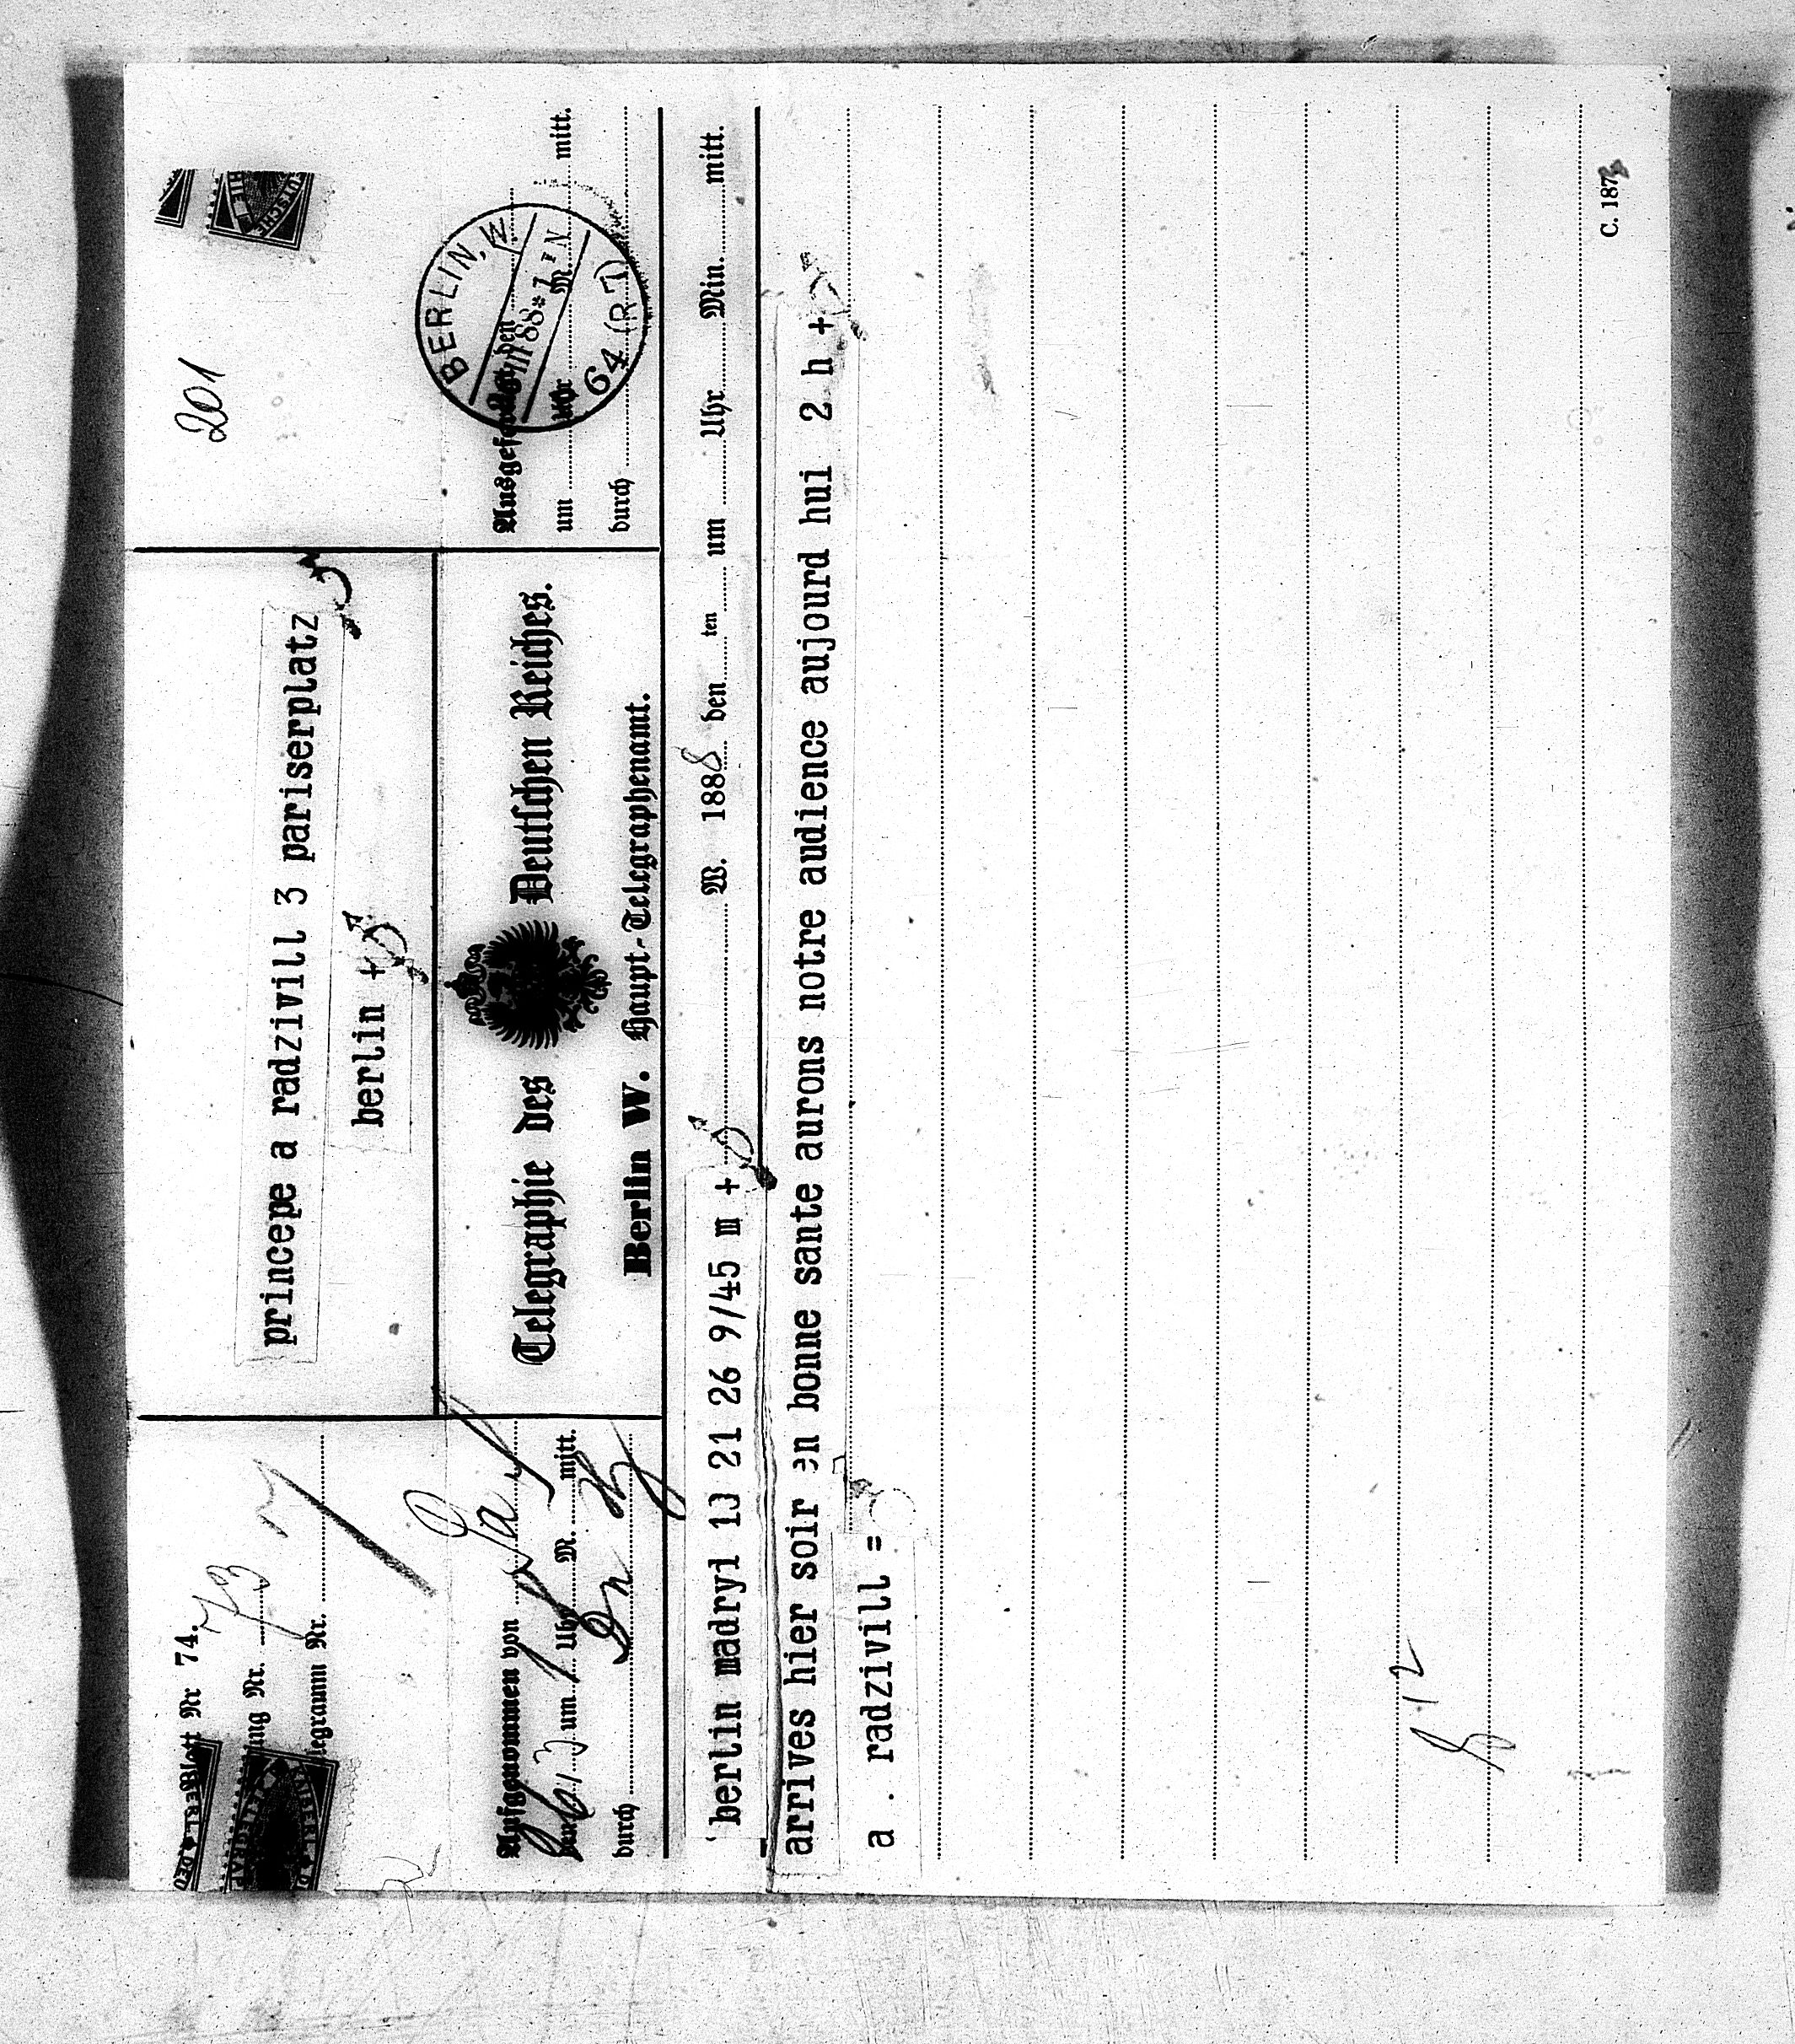 Blatt Nr 74.
Nr. 73
Telegramm Nr.
princepe a radzivill 3 pariserplatz
berlin +
201
Aufgenommen von
um Uhr M. mitt.
durch
Telegraphie des Deutschen Reiches.
Berlin W. Haupt-Telegraphenamt.
BERLIN, W
88
64 (R7)
um Uhr M. mitt.
durch
berlin madryi 10 21 26 9/45 m + W. 1888 den ten um Uhr Min. mitt.
arrives hier soir en bonne sante aurons notre audience aujourd hui 2 h +
a . radzivill =
C. 187